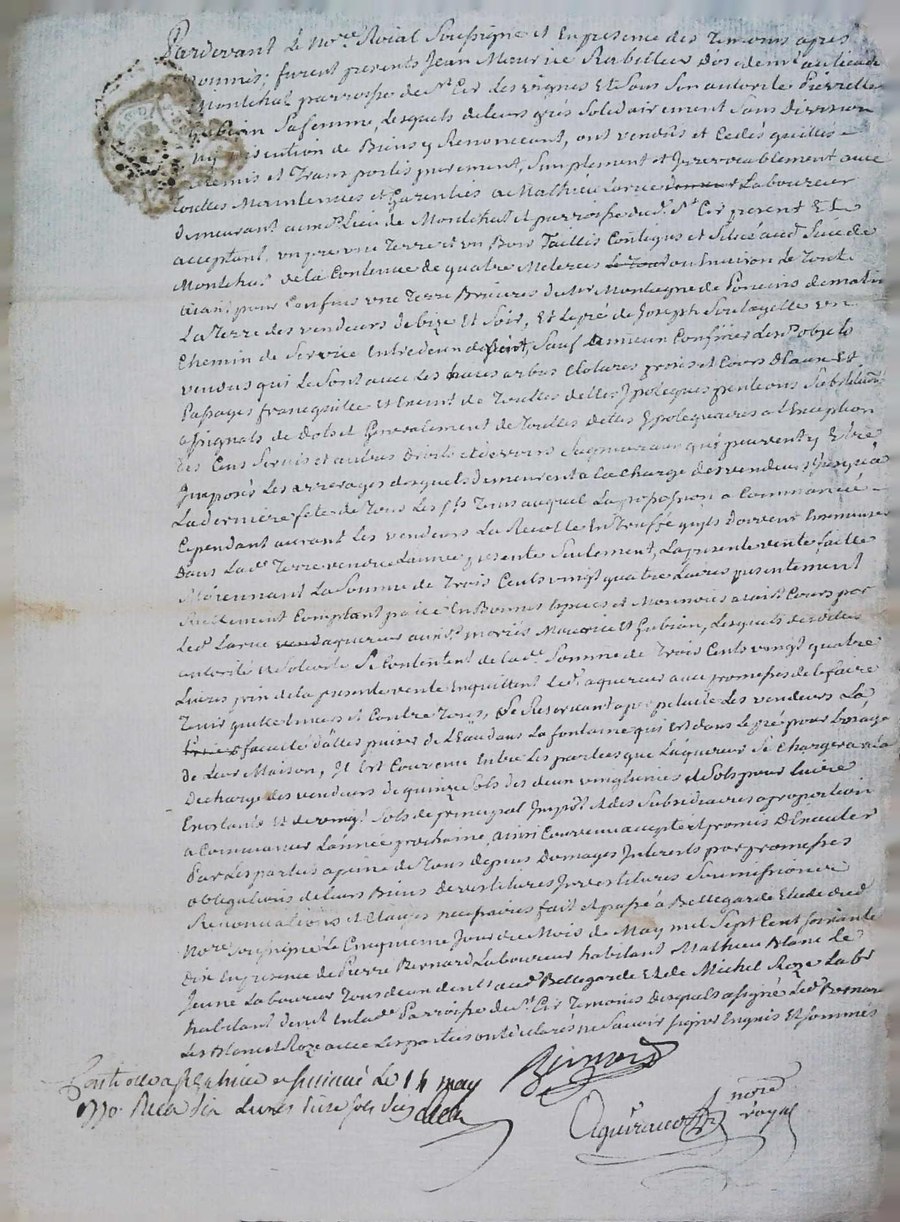 Pardevant Le no.re Roial Soussigné et En presence des Temoins apres
nommés, furent presents Jean Meurice Rabeilleur demt au lieu de
Montchal parroisse de St Cir Les vignes Et Sous Son autorité Pierrette
Gubian Sa femme, Lesquels de leurs grés Solidairement Sans Division
ny discution de Biens y Renoncent, ont vendus et Cedés quittés
Remis et Transportés purement, Simplement et Irrevocablement avec
touttes Maintenues et Garenties a Mathieu Larue Laboureur
demeurant aumd Lieu de Montchal et parroisse dud. St Cir present Et
acceptant, une Terre et un Bois Taillis Contigus et Situés aud Lieu de
Montchal de la Contenue de quatre Meterées ou Environ Le Tout
aiant pour Confins une Terre Brieres du Sr Montagne de Poncins de matin
La Terre des vendeurs de bize Et Soir, Et Le pré de Joseph un
Chemin de Service Entredeux, Sauf mieux Confins Lesd. objets
vendus qui Le Sont avec Les hayes arbres Clotures prises et Cours D'Eaux Et
Passages franc quitte et Exemt de Touttes dettes Ipoteques pentions Substitutions
assignats de Dots et Generalement de Touttes dettes Ypotequaires a l'Exception
des Cens Servis et autres Droits et devoirs Seigneuriaux qui peuvent y Etre
Imposés Les arrerages desquels demeurent a La Charge des vendeurs Jusqu'a
La derniere fete de Tous Les Sts Tems auquel La possession a Commancé
Cependant auront Les vendeurs La Recolte qu'ils doivent
Dans Lad. Terre vendue L'année presente Seulement, La presente vente faitte
Moiennant La Somme de Trois Cents vingt quatre Livres presentement
Reellement Comptant paiée En Bonnes Especes et Monnoies aiant Cours par
Led. Larue aquereur auxd. mariés Meurice Et Gubian, Lesquels
autorité Se Contentent de lad. Somme de Trois Cents vingt quatre
Livres prix de la presente vente En quittent Led. aquereur avec promesse de le faire
Tenir quitte Envers et Contre Tous, Se Reservant a perpetuité Les vendeurs La
faculté d'aller puiser de L'Eau dans La fontaine qui Est dans Le pré pour L'usage
de Leur Maison, Il Est Convenu Entre Les parties que L'aquereur Se Chargera a La
Decharge des vendeurs de quinze Sols des deux vingtiemes et Sols pour Livre
Et de vingt Sols de principal Impôt et des Subsidiaires a proportion
a Commancer L'année prochaine, ainsi Convenu accepté et promis D'Executer
Par Les parties a peine de Tous depens Domages Interets par promesses
obligations de Leurs Biens devestitures Investitures Soumissions
Renonciations et Clauzes necessaires fait et passé à Bellegarde Etude dud
No.re Soussigné Le Cinquieme Jour du Mois de May mil Sept Cent Soixante
Dix En presence de Pierre Bernard Laboureur habitant Mathieu Blanc Le
Jeune Laboureur Tous deux demts aud. Bellegarde Et de Michel Roze Labr
habitant demt En lad. Parroisse de St Cir Temoins desquels a signé Led Bernard
Les Blanc et Roze avec Les parties ont declarés ne Savoir signer Enquis Et Sommés
Bernard
Controllé a et insinué Le 14 may
1770. Reçu Six Livres
nore
royal